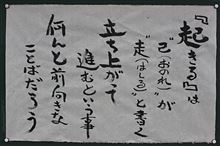 『起きる』は
“己(おのれ)が
“走(はしる)”と書く
立ち上がって
進むという事
何んと前向きな
ことばだろう